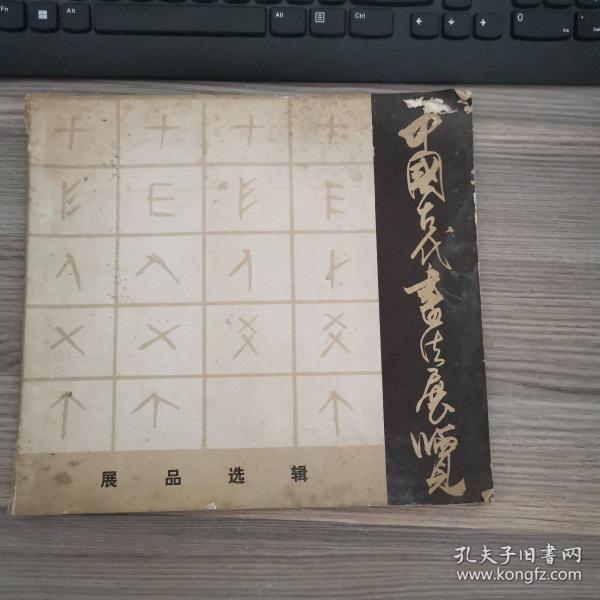 中國古代書法展覽
展品选辑
Fn
Alt
Alt
Ctrl
0
Ins
Del
孔夫子旧书网
www.kongfz.com